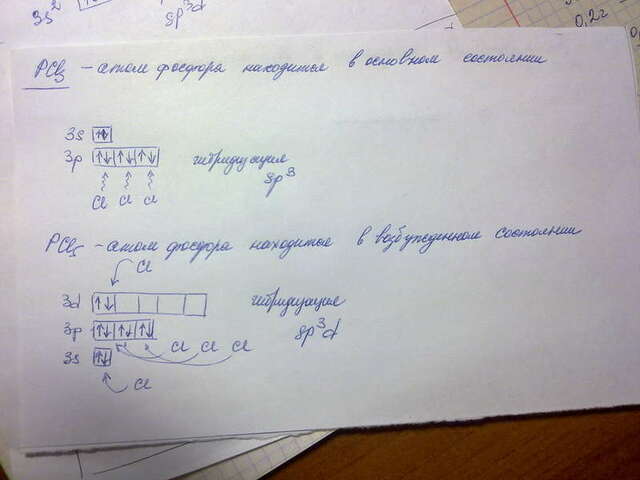 3s² sp³d
0,2г
PCl₃ – атом фосфора находится в основном состоянии
3s ↑↓
3p ↑↓ ↑↓ ↑↓ гибридизация
sp³
Cl Cl Cl
PCl₅ – атом фосфора находится в возбужденном состоянии
Cl
3d ↑↓ гибридизация
3p ↑↓ ↑↓ ↑↓ sp³d
Cl Cl Cl
3s ↑↓
Cl